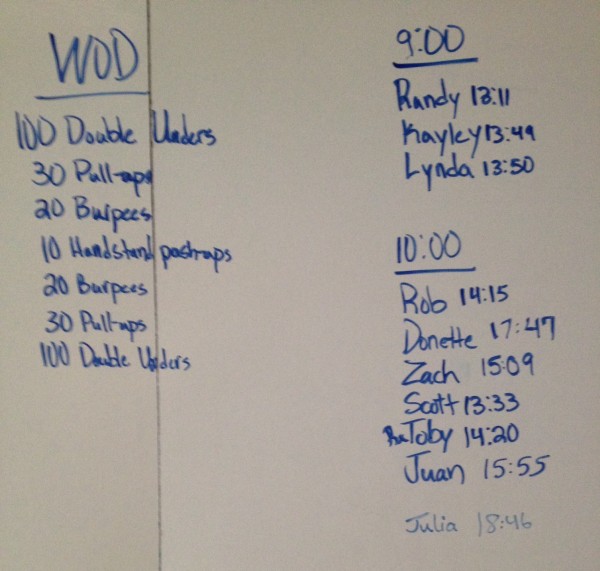 WOD
100 Double Unders
30 Pull-ups
20 Burpees
10 Handstand push-ups
20 Burpees
30 Pull-ups
100 Double Unders
9:00
Randy 13:11
Kayley 13:49
Lynda 13:50
10:00
Rob 14:15
Donette 17:47
Zach 15:09
Scott 13:33
Rx Toby 14:20
Juan 15:55
Julia 18:46